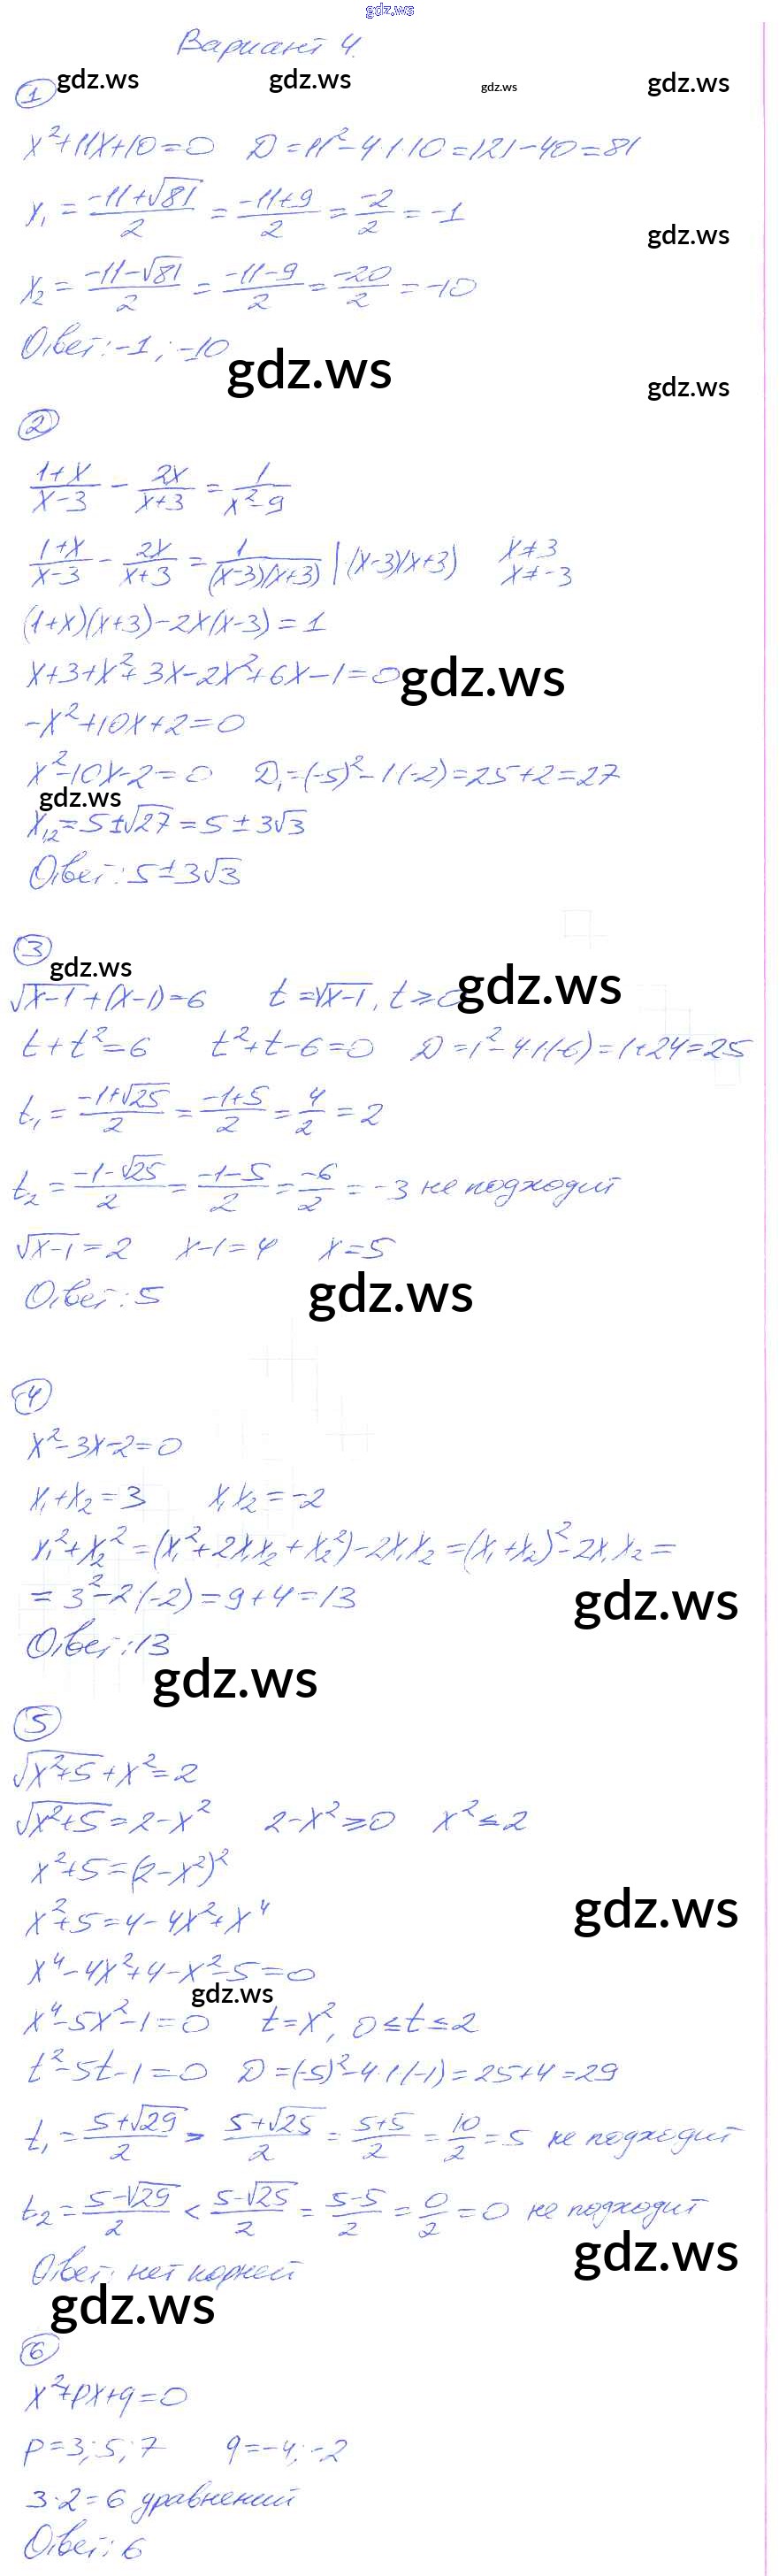 gdz.ws
Вариант 4.
gdz.ws gdz.ws gdz.ws gdz.ws
1
x²+11x+10=0 D=11²-4·1·10=121-40=81
x₁ = (-11+√81)/2 = (-11+9)/2 = -2/2 = -1
gdz.ws
x₂ = (-11-√81)/2 = (-11-9)/2 = -20/2 = -10
Ответ: -1; -10
gdz.ws gdz.ws
2
(1+x)/(x-3) - 2x/(x+3) = 1/(x²-9)
(1+x)/(x-3) - 2x/(x+3) = 1/((x-3)(x+3)) |·(x-3)(x+3) x≠3 x≠-3
(1+x)(x+3)-2x(x-3)=1
x+3+x²+3x-2x²+6x-1=0
gdz.ws
-x²+10x+2=0
x²-10x-2=0 D₁=(-5)²-1·(-2)=25+2=27
gdz.ws
x₁,₂=5±√27=5±3√3
Ответ: 5±3√3
3
gdz.ws gdz.ws
√(x-1)+(x-1)=6 t=√(x-1), t≥0
t+t²=6 t²+t-6=0 D=1²-4·1·(-6)=1+24=25
t₁ = (-1+√25)/2 = (-1+5)/2 = 4/2 = 2
t₂ = (-1-√25)/2 = (-1-5)/2 = -6/2 = -3 не подходит
√(x-1)=2 x-1=4 x=5
Ответ: 5
gdz.ws
4
x²-3x-2=0
x₁+x₂=3 x₁x₂=-2
x₁²+x₂²=(x₁²+2x₁x₂+x₂²)-2x₁x₂=(x₁+x₂)²-2x₁x₂=
=3²-2·(-2)=9+4=13
gdz.ws
Ответ: 13
gdz.ws
5
√(x²+5)+x²=2
√(x²+5)=2-x² 2-x²≥0 x²≤2
x²+5=(2-x²)²
x²+5=4-4x²+x⁴
gdz.ws
x⁴-4x²+4-x²-5=0
gdz.ws
x⁴-5x²-1=0 t=x², 0≤t≤2
t²-5t-1=0 D=(-5)²-4·1·(-1)=25+4=29
t₁ = (5+√29)/2 > (5+√25)/2 = (5+5)/2 = 10/2 = 5 не подходит
t₂ = (5-√29)/2 < (5-√25)/2 = (5-5)/2 = 0/2 = 0 не подходит
gdz.ws
Ответ: нет корней
gdz.ws
6
x²+px+q=0
p=3; 5; 7 q=-4; -2
3·2=6 уравнений
Ответ: 6